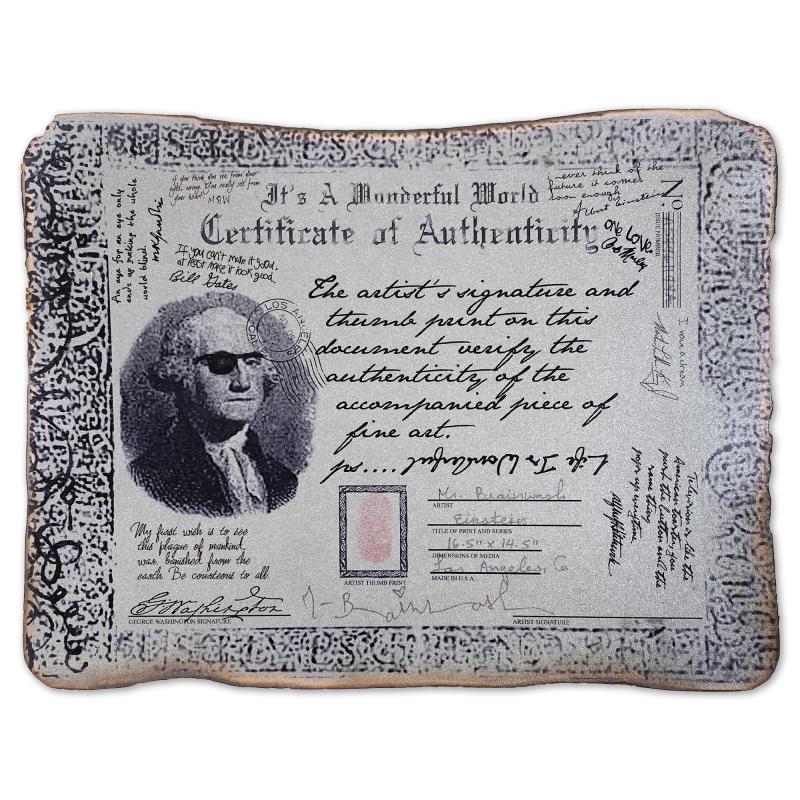 It's A Wonderful World
Certificate of Authenticity
if you think you see from your
eyes, wrong. You really see from
your heart. MBW
An eye for an eye only
ends up making the whole
world blind.
If you can't make it good,
at least make it look good.
Bill Gates
I never think of the
future it comes
soon enough
Albert Einstein
One Love
Bob Marley
No.
ISSUE NUMBER
LOS ANGELES
The artist's signature and
thumb print on this
document verify the
authenticity of the
accompanied piece of
fine art.
ps.....Life Is Wonderful
My first wish is to see
this plague of mankind,
war, banished from the
earth. Be courteous to all.
G Washington
GEORGE WASHINGTON SIGNATURE
ARTIST THUMB PRINT
Mr. Brainwash
ARTIST
Einstein
TITLE OF PRINT AND SERIES
16.5" x 14.5"
DIMENSIONS OF MEDIA
Los Angeles, Ca
MADE IN U.S.A.
ARTIST SIGNATURE
Television is like the
American toaster, you
push the button and the
same thing
pops up everytime.